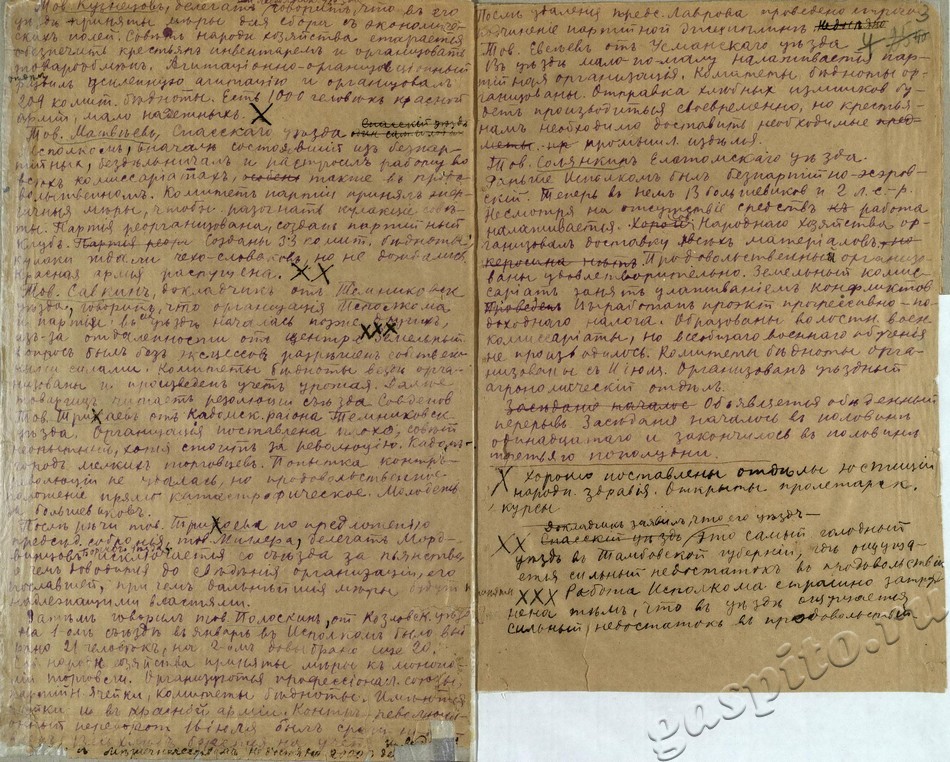 Тов. Кузнецовъ, делегатъ говоритъ, что въ его
уѣздѣ приняты мѣры для сбора съ экономиче-
скихъ полей. Совѣтъ народн. хозяйства старается
обезпечить крестьянъ инвентаремъ и организовать
товарообмѣнъ. Агитаціонно-организаціонный
отдѣлъ усиленную агитацію и организовалъ
209 комит. бѣдноты. Есть 1000 человѣкъ красной
арміи, мало надежныхъ. X
Тов. Матвѣевъ, Спасскаго уѣзда
Исполкомъ, вначалѣ состоявшій изъ безпар-
тійныхъ, бездѣльничалъ и распустилъ работу во
всѣхъ комиссаріатахъ, также въ продо-
вольственномъ. Комитетъ партіи принялъ энер-
гичныя мѣры, чтобы разогнать кулацкіе совѣ-
ты. Партія реорганизована, созданъ партійный
клубъ. Партія реорг Созданы 33 комит. бѣдноты
кулаки ждали чехо-словаковъ, но не дождались.
Красная армія распущена. XX
Тов. Савкинъ, докладчикъ отъ Темниковск.
уѣзда, говоритъ, что организація Исполкома
и партіи въ уѣздѣ началась позже другихъ,
изъ-за отдаленности отъ центра. XXX Земельный
вопросъ былъ безъ эксцессовъ разрѣшенъ собствен-
ными силами. Комитеты бѣдноты вездѣ орга-
низованы и произведенъ учетъ урожая. Далѣе
товарищъ читаетъ резолюціи съѣзда Совдеповъ
Тов. Тришаевъ отъ Кадомск. района Темниковск.
уѣзда. Организація поставлена плохо, совѣтъ
неопытный, хотя стоитъ за революцію. Кадомъ-
городъ мелкихъ торговцевъ. Попытка контръ-
революціи не удалась, но продовольственное
положеніе прямо катастрофическое. Молодежь
за большевиковъ.
Послѣ рѣчи тов. Тришаева по предложенію
предсѣд. собранія, тов. Миллера, делегатъ Морд-
виновъ исключается со съѣзда за пьянство
о чемъ доводится до свѣдѣнія организаціи, его
пославшей, причемъ дальнѣйшія мѣры будутъ
надлежащими властями.
Затѣмъ говорилъ тов. Полоскинъ, отъ Козловск. уѣзда
На 1-омъ съѣздѣ въ январѣ въ Исполкомъ было выб-
рано 21 человѣкъ, на 2-омъ довыбрано еще 20.
народн. хозяйства приняты мѣры къ монопо-
ліи торговли. Организуются профессіонал. союзы,
партійн. ячейки, комитеты бѣдноты. Имѣются
ячейки и въ красной арміи. Контръ-революці-
онный переворотъ 1 іюля былъ
Послѣ удаленія предс. Лаврова проведено строгое
подчиненіе партійной дисциплинѣ.
Тов. Евсѣевъ отъ Усманскаго уѣзда
Въ уѣздѣ мало-по-малу налаживается пар-
тійная организація. Комитеты бѣдноты ор-
ганизованы. Отправка хлѣбныхъ излишковъ бу-
детъ производиться своевременно, но крестья-
намъ необходимо доставить необходимые пред-
меты. промышл. издѣлія.
Тов. Солянкинъ Елатомскаго уѣзда.
Раньше Исполкомъ былъ безпартійно-эсэров-
скій. Теперь въ немъ 13 большевиковъ и 2 л.с.-р.
Несмотря на отсутствіе средствъ работа
налаживается. Народнаго хозяйства ор-
ганизовалъ доставку всѣхъ матеріаловъ,
керосина Продовольственный организо-
ванъ удовлетворительно. Земельный комис-
саріатъ занятъ улаживаніемъ конфликтовъ
Проведенъ Выработанъ проэктъ прогрессивно-по-
доходнаго налога. Образованы волостн. воен.
комиссаріаты, но всеобщаго военнаго обученія
не производилось. Комитеты бѣдноты орга-
низованы съ іюля. Организованъ уѣздный
агрономическій отдѣлъ.
Засѣданіе началос Объявляется обѣденный
перерывъ. Засѣданіе началось въ половинѣ
одинадцатаго и закончилось въ половинѣ
третьяго пополудни.
X Хорошо поставлены отдѣлы юстиціи
народн. здравія. Открыты пролетарск.
курсы
Докладчикъ заявилъ, что его уѣздъ-
XX Спасскій уѣздъ Это самый голодный
уѣздъ въ Тамбовской губерніи, гдѣ ощуща-
ется сильный недостатокъ въ продовольствіи
XXX Работа Исполкома страшно затруд-
нена тѣмъ, что въ уѣздѣ ощущается
сильный недостатокъ въ продовольствіи
gaspito.ru